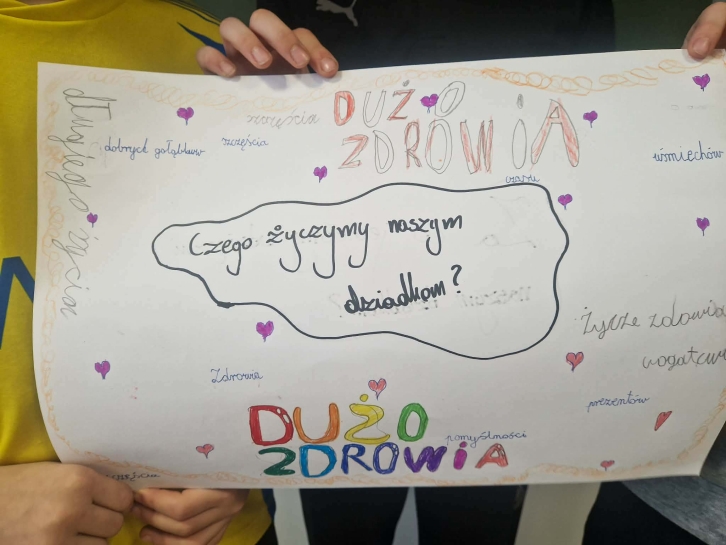 długiego życia
szczęścia
DUŻO
ZDROWIA
dobrych gołąbków
szczęścia
uśmiechów
Czego życzymy naszym
dziadkom?
Życze zdowia
Zdrowia
prezentów
DUŻO
ZDROWIA
pomyślności